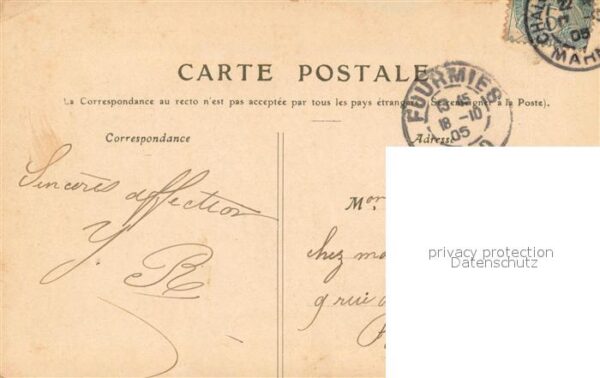 CARTE POSTALE
(La Correspondance au recto n'est pas acceptée par tous les pays étrangers. Se renseigner à la Poste).
FOURMIES
15-45
18-10
05
MARNE
05
Correspondance
Adresse
Sincères affection
Y R
M
chez
9 rue
privacy protection
Datenschutz